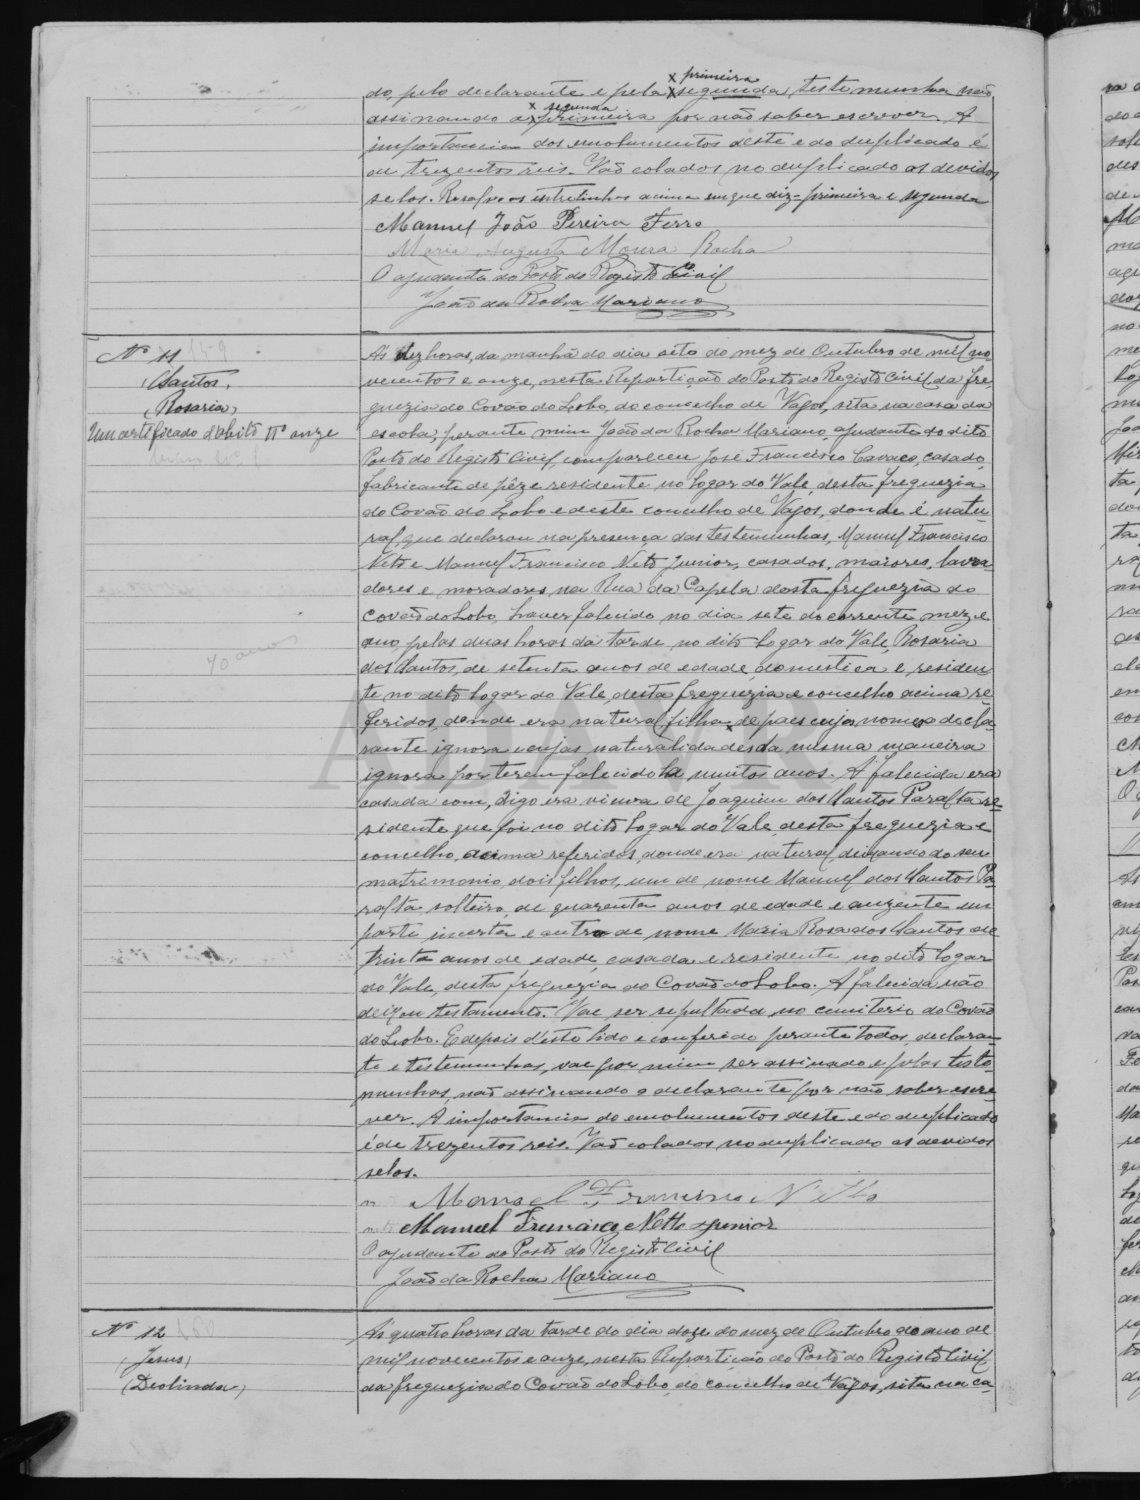 primeira
do, pelo declarante e pela segunda, testemunha não
segunda
assinando a primeira por não saber escrever. A
importancia dos emolumentos deste e do duplicado é
de trezentos reis. Vaõ colados no duplicado os devidos
selos. Resalvo as entrelinhas acima em que diz-primeira e segunda
Manuel João Pereira Ferro
Maria Augusta Moura Rocha
O ajudante do Posto do Registo Civil
João da Rocha Mariano
Nº 11
(Santos,
(Rosaria)
Um certificado d'obito Nº onze
70 anos
Ás dez horas, da manhã do dia sete do mez de Outubro de mil no-
vecentos e onze, nesta Repartição do Posto do Registo Civil da fre-
guezia do Covão do Lobo, do concelho de Vagos, sita na casa da
escola, perante mim João da Rocha Mariano, ajudante do dito
Posto do Registo Civil, compareceu José Francisco Cavaco, casado,
fabricante de pêze residente no logar do Vale, desta freguezia
do Covão do Lobo e deste concelho de Vagos, donde é natu-
ral, que declarou na presença das testemunhas, Manuel Francisco
Neto e Manuel Francisco Neto Junior, casados, maiores, lavra-
dores e moradores na Rua da Capela desta freguezia do
Covão do Lobo, haver falecido no dia sete do corrente mez e
ano, pelas duas horas da tarde, no dito logar do Vale, Rosaria
dos Santos, de setenta anos de edade, domestica e, residen-
te no dito logar do Vale, desta freguezia e concelho acima re-
feridos, donde era natural, filha de paes cujos nomes o decla-
rante ignora e cujas naturalidades da mesma maneira
ignora por terem falecido ha muitos anos. A falecida era
casada com, digo era viuva de Joaquim dos Santos Paralta re-
sidente que foi no dito logar do Vale, desta freguezia e
concelho, acima referidos, donde era natural, deixando do seu
matrimonio dois filhos, um de nome Manuel dos Santos Pa-
ralta solteiro, de quarenta anos de edade e auzente em
parte incerta e outro de nome Maria Rosa dos Santos de
trinta anos de edade, casada e residente no dito logar
do Vale, desta freguezia do Covão do Lobo. A falecida não
deixou testamento. Vae ser sepultada no cemiterio do Covão
do Lobo. E depois d'esto lido e conferido perante todos, declaran-
te e testemunhas, vae por mim ser assinado e pelas teste-
munhas, não assinando o declarante por não saber escre-
ver. A importancia do emolumentos deste e do duplicado
é de trezentos reis. Vaõ colados no duplicado os devidos
selos.
Manoel Francisco Netto
Manuel Francisco Netto Junior
O ajudante do Posto do Registo Civil
João da Rocha Mariano
Nº 12
(Jesus)
(Deolinda)
Ás quatro horas da tarde do dia doze do mez de Outubro do ano de
mil novecentos e onze, nesta Repartição do Posto do Registo Civil
da freguezia do Covão do Lobo, do concelho de Vagos, sita na ca-